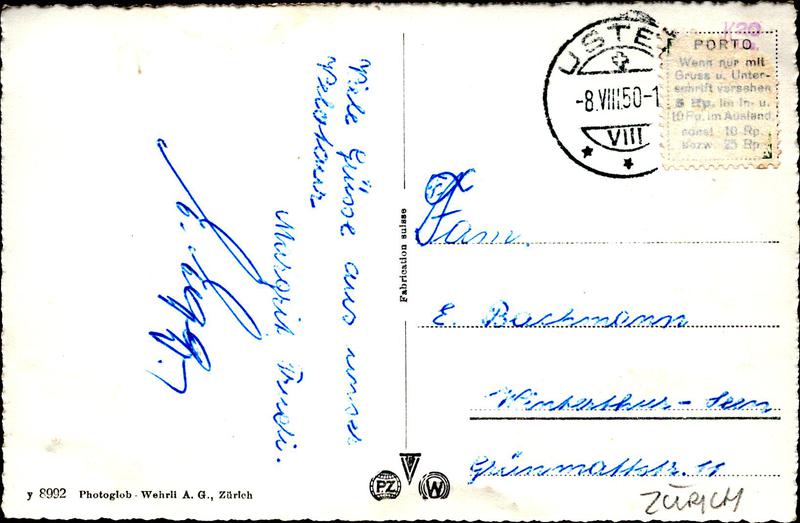 Viele Grüsse aus unser
Velotour
Margrit Trudi.
USTER
-8.VIII.50-1
VIII
PORTO
Wenn nur mit
Gruss u. Unter-
schrift versehen
5 Rp. im In- u.
10 Rp. im Ausland,
sonst 10 Rp.
bezw. 25 Rp.
Fabrication suisse
Fam.
E. Bachmann
Winterthur - Seen
Grünmattstr. 11
ZÜRICH
PZ W
y 8992 Photoglob - Wehrli A. G., Zürich